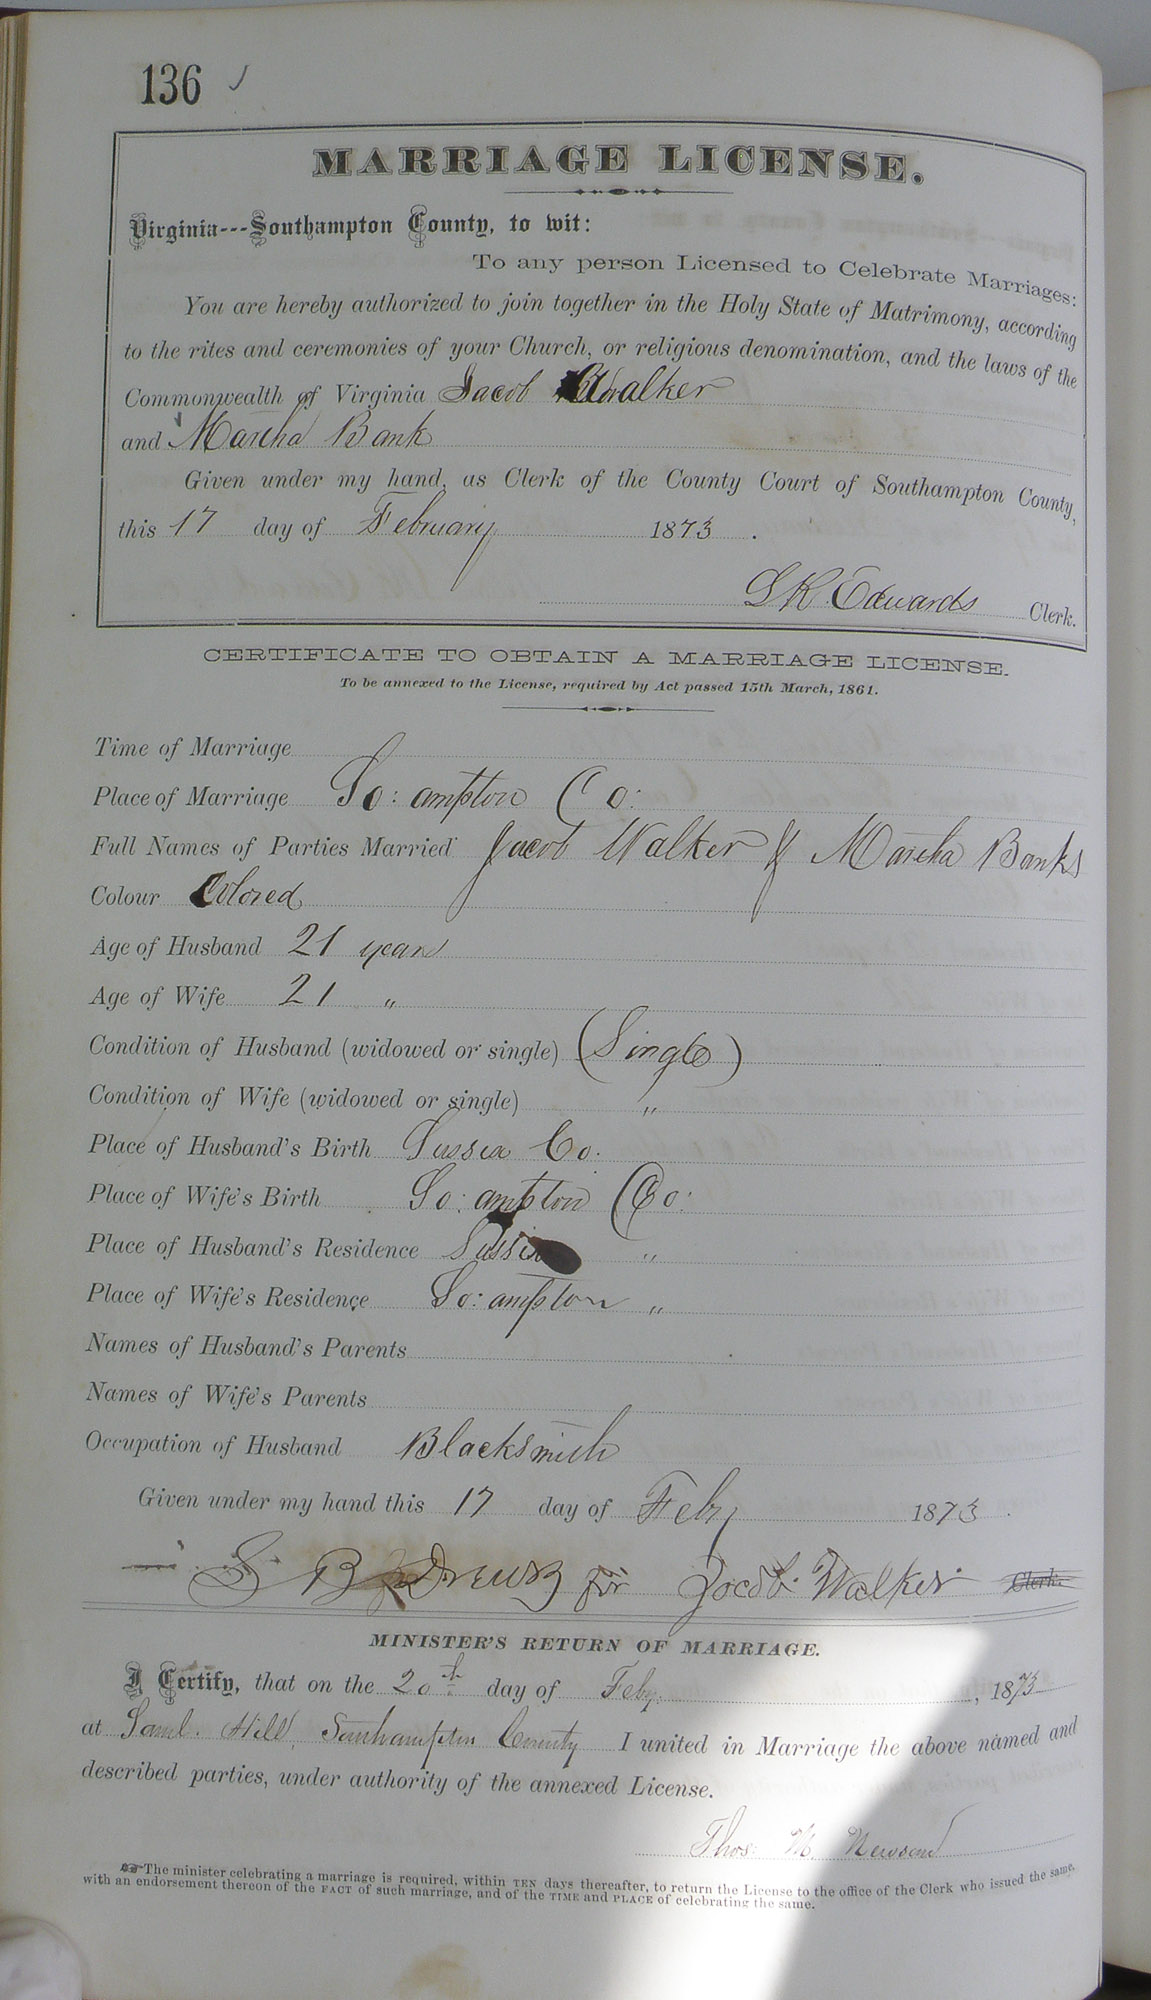 136
MARRIAGE LICENSE.
Virginia---Southampton County, to wit:
To any person Licensed to Celebrate Marriages:
You are hereby authorized to join together in the Holy State of Matrimony, according
to the rites and ceremonies of your Church, or religious denomination, and the laws of the
Commonwealth of Virginia Jacob Walker
and Martha Bank
Given under my hand, as Clerk of the County Court of Southampton County,
this 17 day of February 1873.
L R Edwards Clerk.
CERTIFICATE TO OBTAIN A MARRIAGE LICENSE.
To be annexed to the License, required by Act passed 15th March, 1861.
Time of Marriage
Place of Marriage So: ampton Co:
Full Names of Parties Married Jacob Walker & Martha Banks
Colour Colored
Age of Husband 21 years
Age of Wife 21 "
Condition of Husband (widowed or single) (Single)
Condition of Wife (widowed or single) "
Place of Husband's Birth Sussex Co.
Place of Wife's Birth So: ampton Co:
Place of Husband's Residence Sussex "
Place of Wife's Residence So: ampton "
Names of Husband's Parents
Names of Wife's Parents
Occupation of Husband Blacksmith
Given under my hand this 17 day of Feby 1873.
S B Drewry for Jacob Walker Clerk.
MINISTER'S RETURN OF MARRIAGE.
I Certify, that on the 20th day of Feby, 1873
at Saml. Hill, Southampton County I united in Marriage the above named and
described parties, under authority of the annexed License.
Thos. Newsom
The minister celebrating a marriage is required, within TEN days thereafter, to return the License to the office of the Clerk who issued the same,
with an endorsement thereon of the FACT of such marriage, and of the TIME and PLACE of celebrating the same.